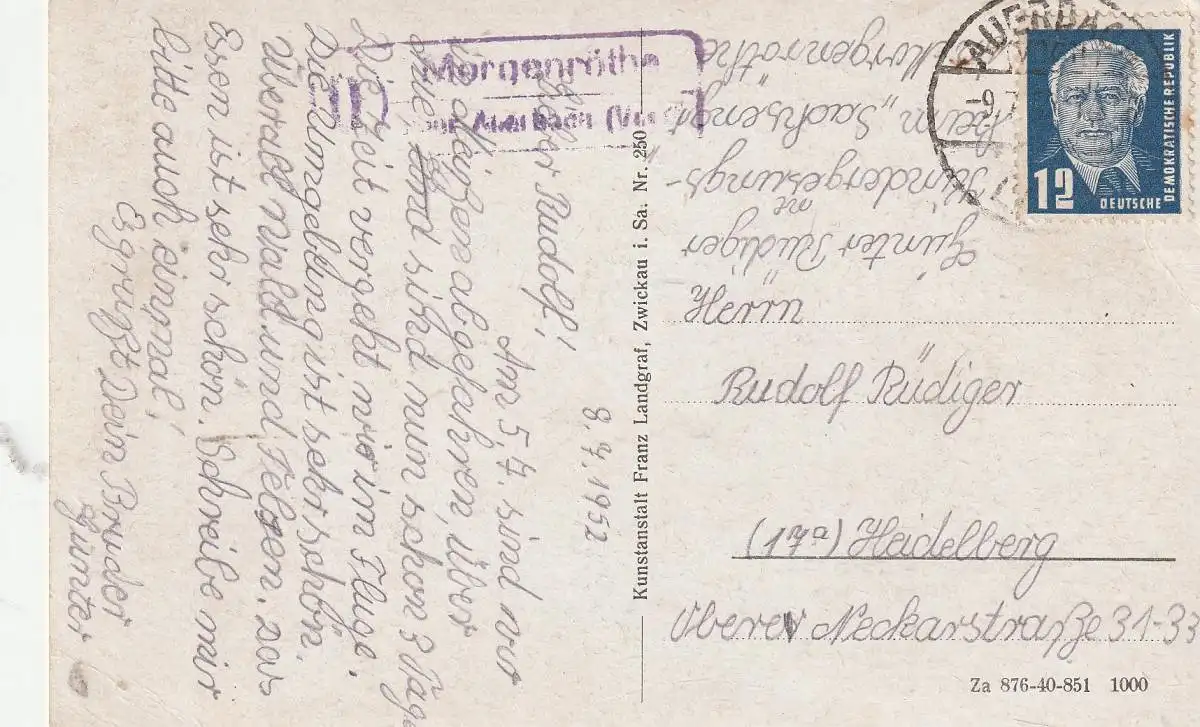 8.7.1952
Lieber Rudolf,
Am 5.7. sind wir
in abgefahren, über
sind nun schon 3 Tage
Die Zeit vergeht wie im Fluge.
Die Umgebung ist sehr schön.
Überall Wald und Felsen. Das
Essen ist sehr schön. Schreibe mir
bitte auch einmal,
Es grüßt Dein Bruder
Günter
Morgenröthe
über Auerbach (Vo
AUERBAC
-9.7
12
DEUTSCHE
DEMOKRATISCHE REPUBLIK
Günter Rüdiger
Kindergesungs-
heim „Sachsengrund"
Morgenröthe
Kunstanstalt Franz Landgraf, Zwickau i. Sa. Nr. 250
Herrn
Rudolf Rüdiger
(17a) Heidelberg
Obere Neckarstraße 31-33
Za 876-40-851 1000